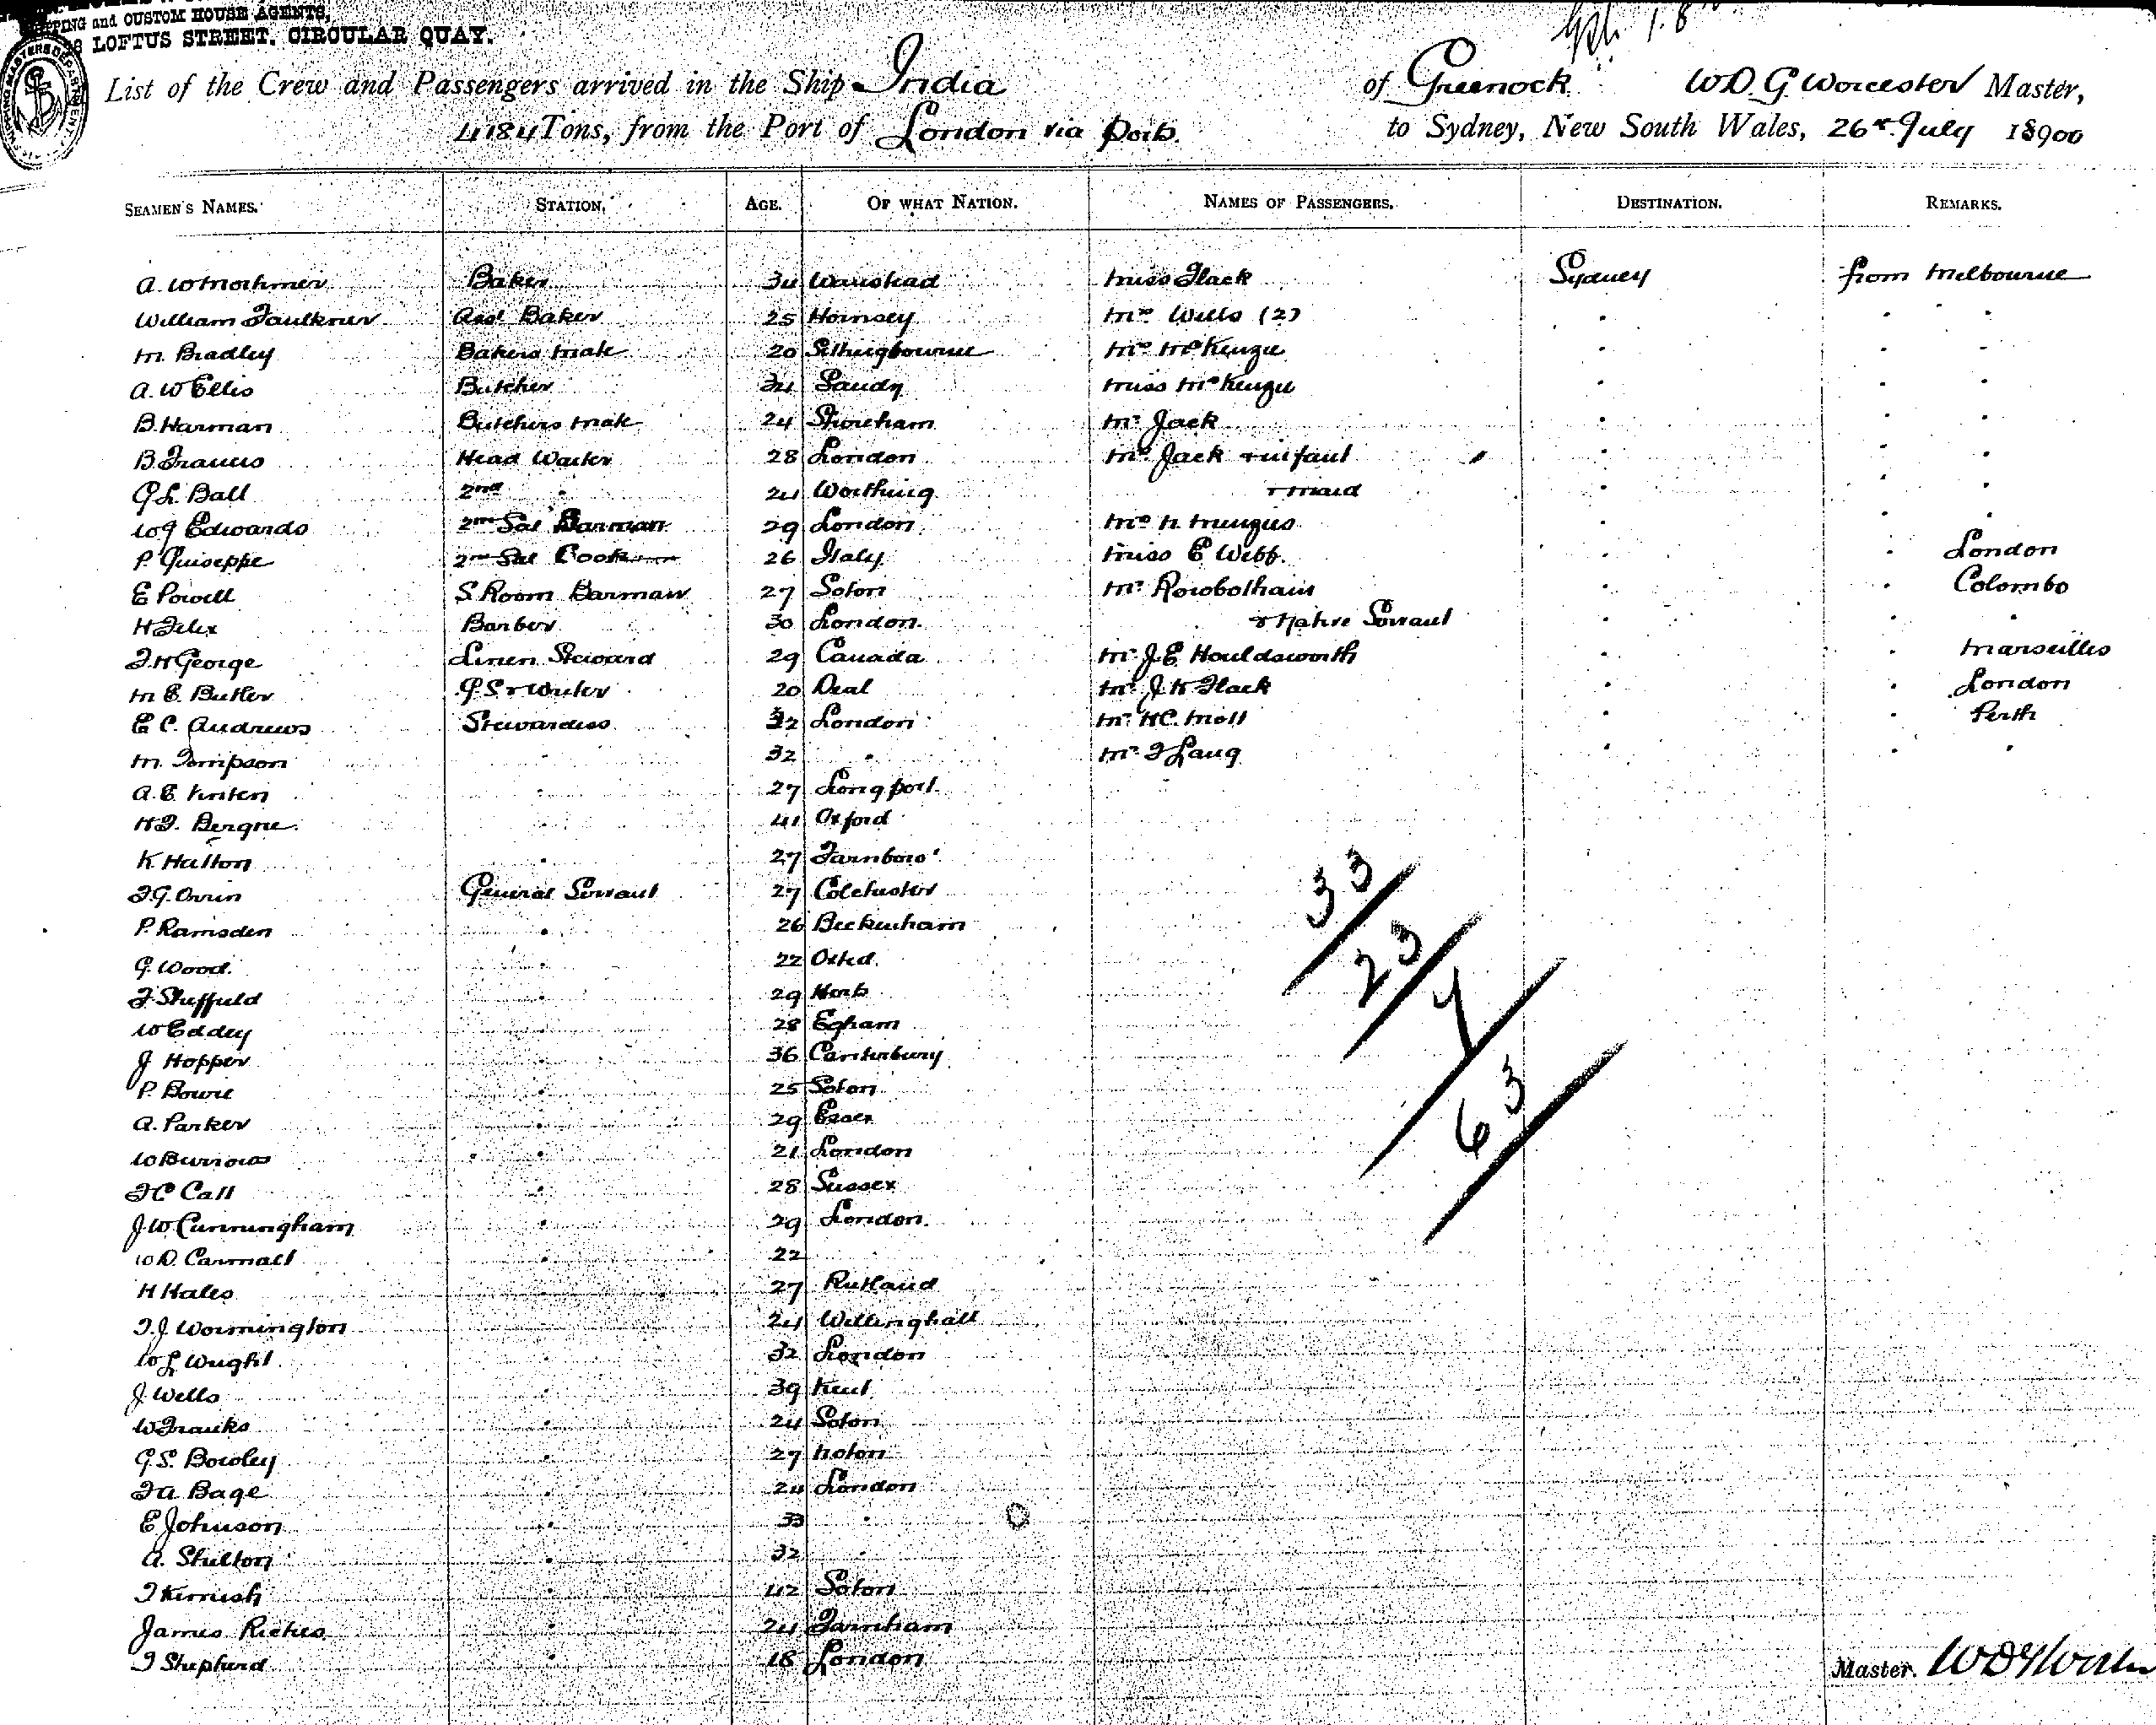 SHIPPING and CUSTOM HOUSE AGENTS,
8 LOFTUS STREET, CIRCULAR QUAY.
List of the Crew and Passengers arrived in the Ship India of Greenock W.D.G. Worcester Master,
4184 Tons, from the Port of London via Ports to Sydney, New South Wales, 26th July 18900
SEAMEN'S NAMES. STATION. AGE. OF WHAT NATION. NAMES OF PASSENGERS. DESTINATION. REMARKS.
A. W Mortimer Baker 34 Wanstead Miss Flack Sydney from Melbourne
William Faulkner Asst Baker 25 Hornsey Mrs Wills (2) " " "
M. Bradley Bakers Mate 20 Sittingbourne Mrs McKenzie " " "
A. W Ellis Butcher 34 Sandy Miss McKenzie " " "
B. Harman Butchers Mate 24 Shoreham Mr Jack " " "
B. Francis Head Waiter 28 London Mrs Jack + infant " " "
G L Ball 2nd " 24 Worthing + maid " " "
W J Edwards 2nd Sal Barman 29 London Mrs N. Menzies " "
P. Guiseppe 2nd Sal Cook 26 Italy Miss E Webb. " " London
E Powell S. Room Barman 27 Soton Mr Rowbotham " " Colombo
H Felix Barber 30 London + Native Servant " " "
F. H George Linen Steward 29 Canada Mr J. E. Houldsworth " " Marseilles
M E. Butler G. S + Writer 20 Deal Mr J. H Flack " " London
E C. Andrews Stewardess 32 London Mr H C. Moll " " Perth
M. Tompson " 32 " Mr F Lang " " "
A. E. " 27 Longport
H F. Bergne " 41 Oxford
K Hatton " 27 Farnboro'
F. G. Orrin General Servant 27 Colchester
P. Ramsden " 26 Beckenham
G. Wood. " 22 Oxted
F. Sheffield " 29 Herts
W Eddey " 28 Egham
J Hopper " 36 Canterbury
P. Bowie " 25 Soton
A. Parker " 29 Essex
W Burrows " 21 London
F C Call " 28 Sussex
J. W. Cunningham " 29 London
W D. " 22 "
H Hales " 27 Rutland
F. J. Wormington " 24 Willinghall
W L Wright " 32 London
J. Wells " 39 Kent
W Franks " 24 Soton
G. S. Bowley " 27
F A Bage " 24 London
E Johnson " 33 "
A. Shelton " 32 "
F Kernish " 42 Soton
James Riches " 24 Farnham
F Shepherd " 18 London
33
23
7
63
Master. W D G Worcester